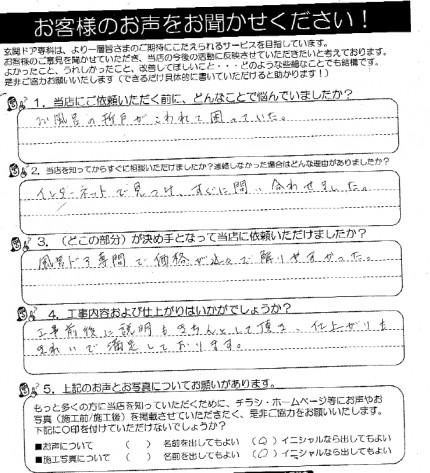 お客様のお声をお聞かせください！
玄関ドア専科は、より一層皆さまのご期待にこたえられるサービスを目指しています。
お客様のご意見を聞かせていただき、当店の今後の活動に反映させていただきたいと考えております。
よかったこと、うれしかったこと、改善してほしいこと・・・どのような些細なことでも結構です。
是非ご協力お願いいたします（できるだけ具体的に書いていただけると助かります！）
1．当店にご依頼いただく前に、どんなことで悩んでいましたか？
お風呂の折戸がこわれて困っていた。
2．当店を知ってからすぐに相談いただけましたか？連絡しなかった場合はどんな理由がありましたか？
インターネットで見つけ、すぐに問い合わせました。
3．（どこの部分）が決め手となって当店に依頼いただけましたか？
風呂ドア専門で価格が で頼りやすかった。
4．工事内容および仕上がりはいかがでしょうか？
工事前後に説明もきちんとして頂き、仕上がりも
きれいで満足しております。
5．上記のお声とお写真についてお願いがあります。
もっと多くの方に当店を知っていただくために、チラシ・ホームページ等にお声やお
写真（施工前/施工後）を掲載させていただきたく、是非ご協力をお願いいたします。
下記に○印を付けていただけないでしょうか？
■お声について （ ） 名前を出してもよい （○）イニシャルなら出してもよい
■施工写真について （ ） 名前を出してもよい （○）イニシャルなら出してもよい